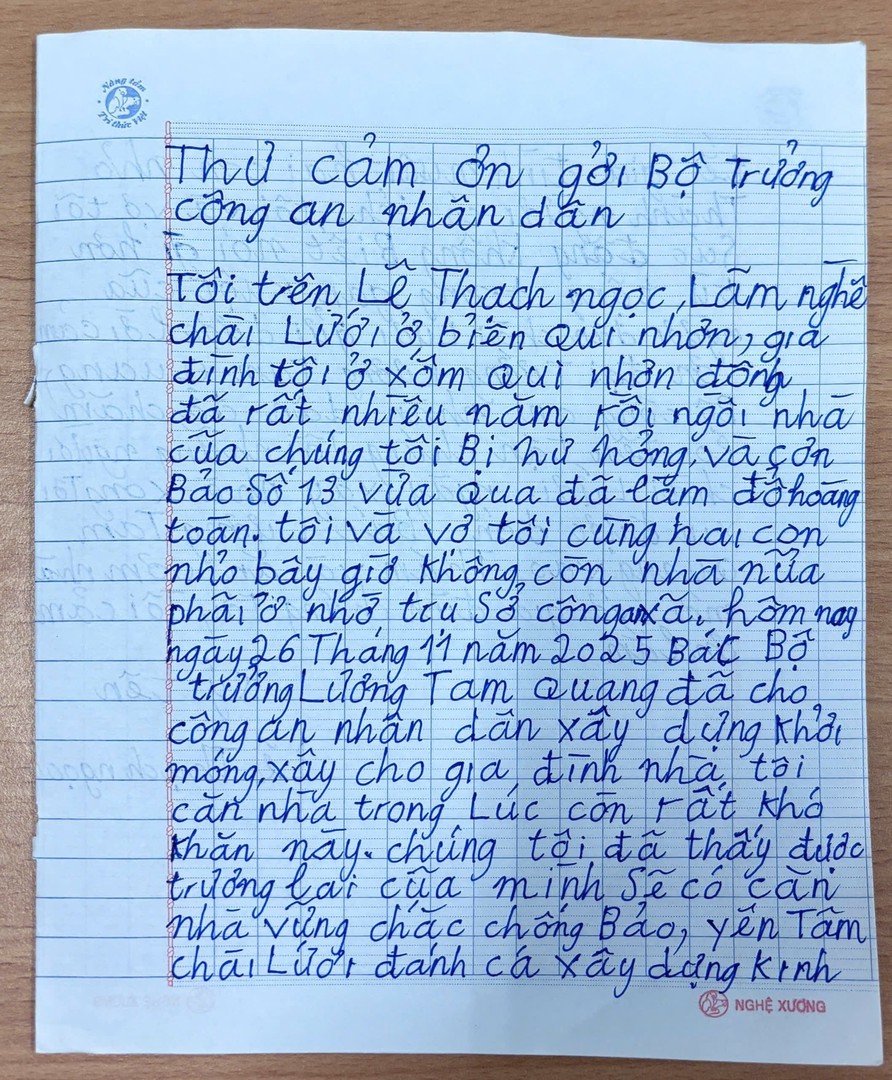 Nâng tầm
Trí thức Việt
Thư cảm ơn gởi Bộ Trưởng
công an nhân dân
Tôi trên Lê Thạch ngọc, Làm nghề
chài Lưới ở biển Qui nhơn, gia
đình tôi ở xóm Qui nhơn đông
đã rất nhiều năm rồi ngôi nhà
của chúng tôi Bị hư hỏng, và cơn
Bảo Số 13 vừa qua đã làm đổ hoàng
toàn. tôi và vợ tôi cùng hai con
nhỏ bây giờ không còn nhà nữa
phải ở nhờ trụ Sở công an xã. hôm nay
ngày 26 Tháng 11 năm 2025 Bác Bộ
trưởng Lương Tam Quang đã cho
công an nhân dân xây dựng khởi
móng, xây cho gia đình nhà tôi
căn nhà trong Lúc còn rất khó
khăn này. chúng tôi đã thấy được
trương lai của mình Sẽ có căn
nhà vững chắc chống Bảo, yên Tâm
chài Lưới đánh cá xây dựng kinh
NGHỆ XƯƠNG